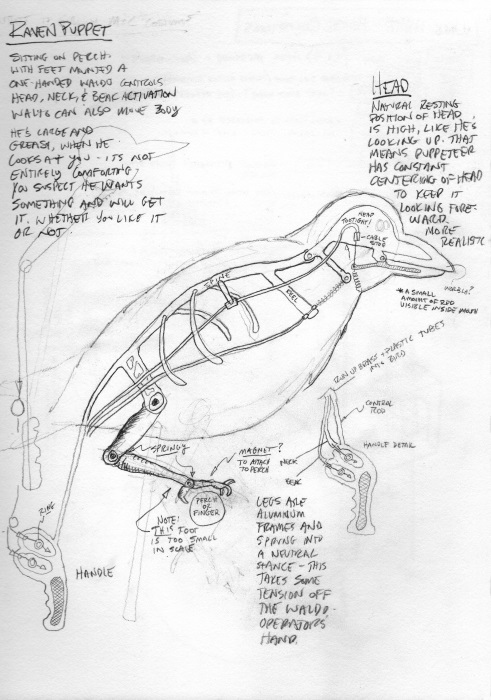 RAVEN PUPPET
SITTING ON PERCH.
WITH FEET MUNTED A
ONE-HANDED WALDO CONTROLS
HEAD, NECK, & BEAK ACTIVATION
CAN ALSO MOVE BODY
HE'S LARGE AND
GREASY, WHEN HE
LOOKS AT YOU - IT'S NOT
ENTIRELY COMFORTING
YOU SUSPECT HE WANTS
SOMETHING AND WILL GET
IT. WHETHER YOU LIKE IT
OR NOT.
HEAD
NATURAL RESTING
POSITION OF HEAD
IS HIGH, LIKE HE'S
LOOKING UP. THAT
MEANS PUPPETEER
HAS CONSTANT
CENTERING OF HEAD
TO KEEP IT
LOOKING FORE-
WARD.
MORE
REALISTIC
HEAD
TOO TIGHT!
CABLE
STOP
SPINE
KEEL
* A SMALL
AMOUNT OF RED
VISIBLE INSIDE MOUTH
RUN UP BRASS + PLASTIC TUBES
BIRD
CONTROL
ROD
HANDLE DETAIL
NECK
BEAK
SPRINGY
MAGNET?
TO ATTACH
TO PERCH
PERCH
OF
FINGER
NOTE!
THIS FOOT
IS TOO SMALL
IN SCALE
RING
HANDLE
LEGS ARE
ALUMINUM
FRAMES AND
SPRING INTO
A NEUTRAL
STANCE - THIS
TAKES SOME
TENSION OFF
THE WALDO-
OPERATORS
HAND.